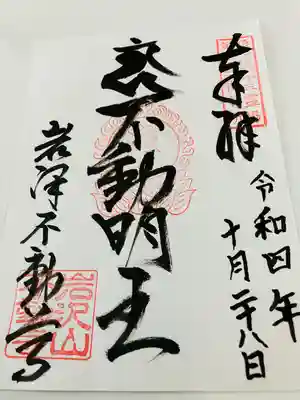 奉拝
令和四年
十月二十八日
不動明王
岩澤不動尊
岩沢山